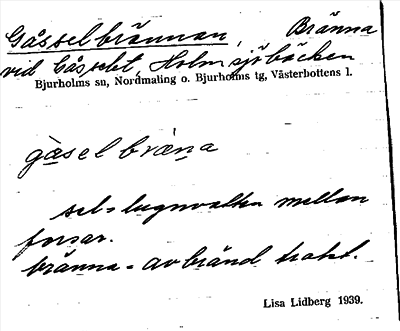 Gåsselbrännan, Bränna
vid Gåsselet, Holmsjöbäcken
Bjurholms sn, Nordmaling o. Bjurholms tg, Västerbottens l.
gåsel bräna
sel = lugnvatten mellan
forsar.
bränna = avbränd trakt.
Lisa Lidberg 1939.